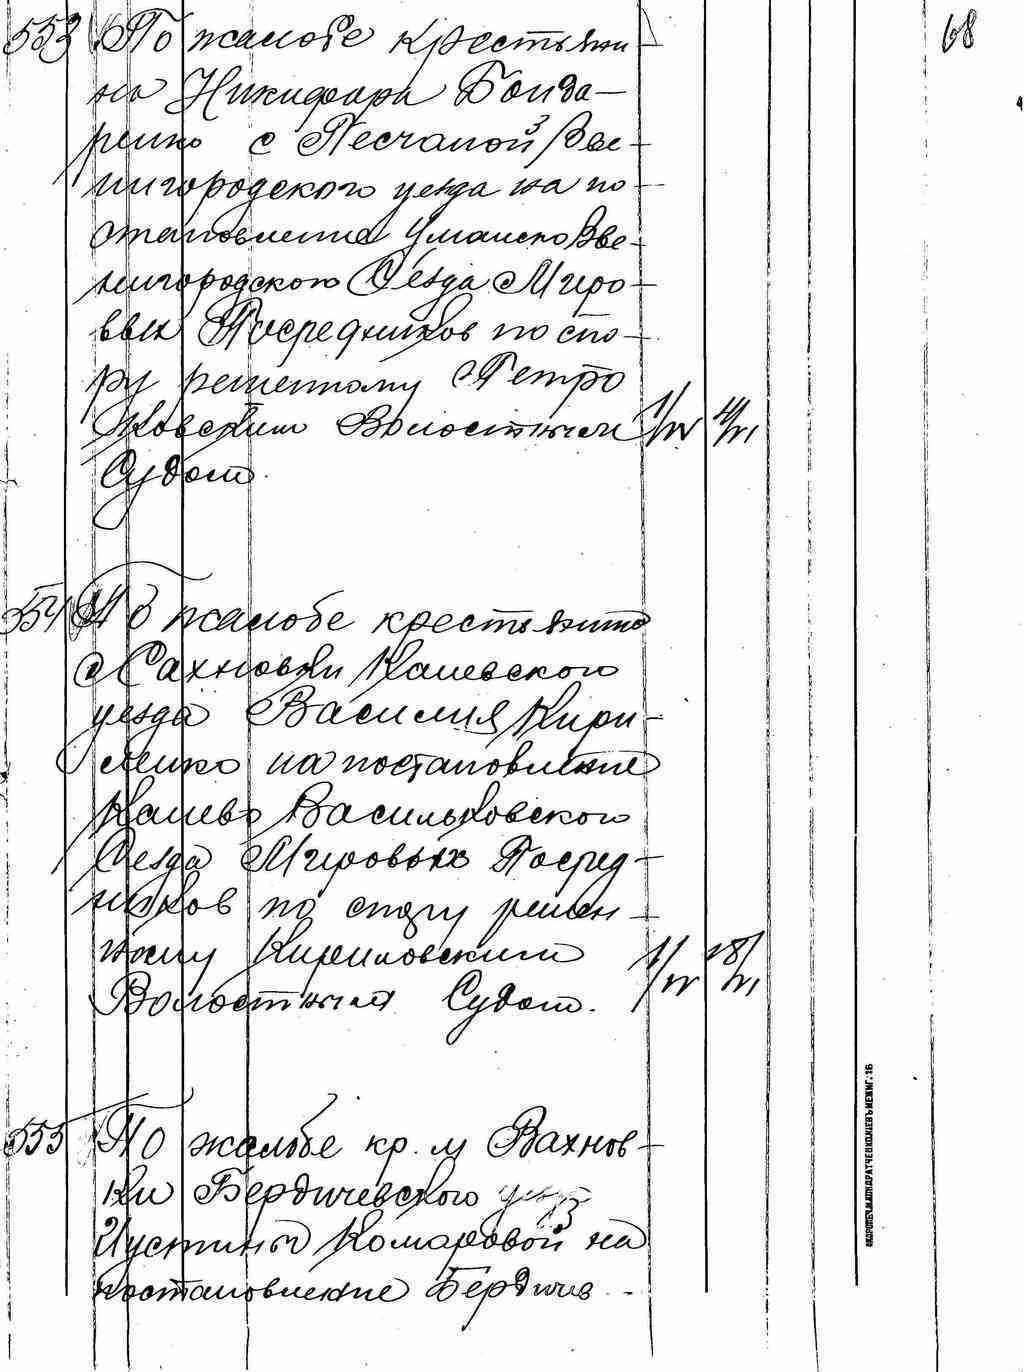 68
553 По жалобе крестьяни-
на Никифора Бонда-
ренко с Песчаной Зве-
нигородского уезда на по-
становление Уманско Зве-
нигородского Съезда Миро-
вых Посредников по спо-
ру решенному Петро
ковским Волостным 1/IV 4/VI
Судом.
554 По жалобе крестьянина
с Сахновки Каневского
уезда Василия Кири-
ленко на постановление
Канево Васильковского
Съезда Мировых Посред-
ников по спору решен-
ному Кириловским
Волостным Судом. 1/IV 18/VI
555 По жалобе кр. м Вахнов-
ки Бердичевского уезда
Иустины Комаровой на
постановление Бердичев-